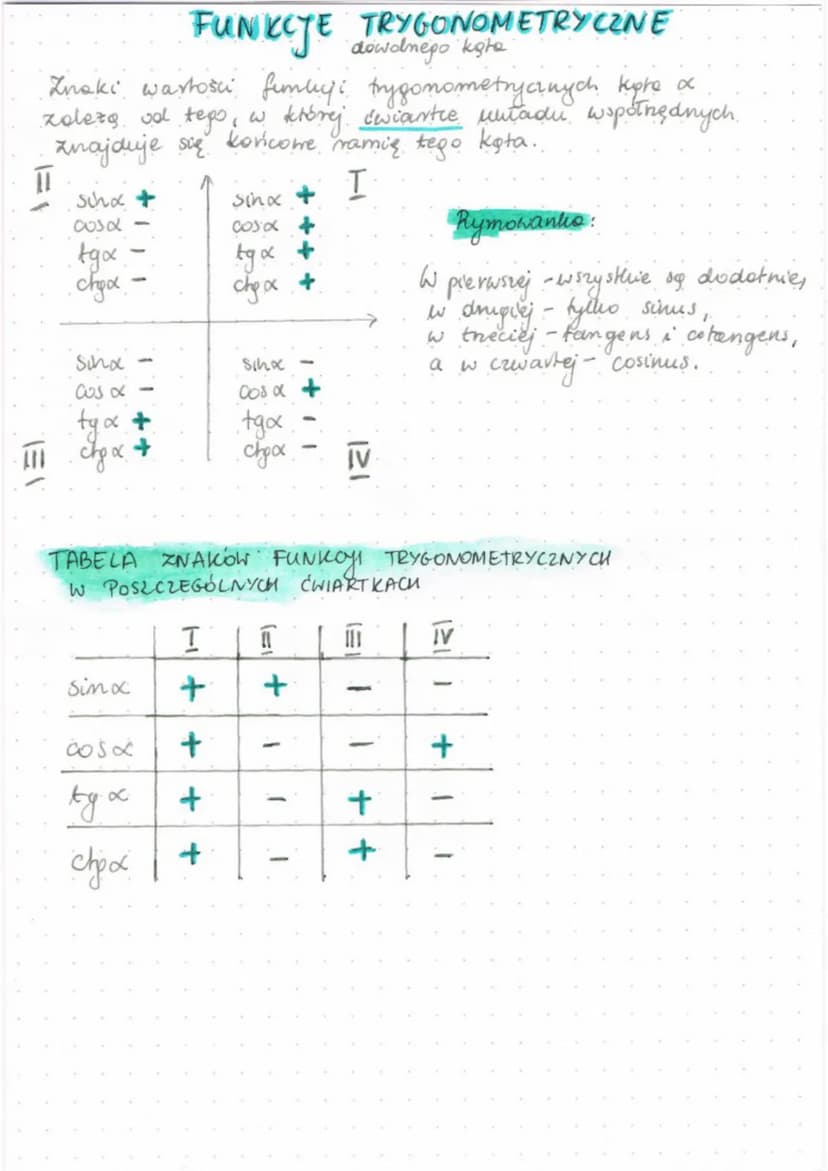 FUNKCJE TRYGONOMETRYCZNE
dowolnego kąta
Znaki wartości funkcji trygonometrycznych kąta α
zależą od tego, w której ćwiartce układu współrzędnych
znajduje się końcowe ramię tego kąta.
II
sinα +
cosα -
tgα -
ctgα -
I
sinα +
cosα +
tgα +
ctgα +
III
sinα -
cosα -
tgα +
ctgα +
IV
sinα -
cosα +
tgα -
ctgα -
Rymowanka:
W pierwszej - wszystkie są dodatnie,
w drugiej - tylko sinus,
w trzeciej - tangens i cotangens,
a w czwartej - cosinus.
TABELA ZNAKÓW FUNKCJI TRYGONOMETRYCZNYCH
W POSZCZEGÓLNYCH ĆWIARTKACH
I II III IV
sinα + + - -
cosα + - - +
tgα + - + -
ctgα + - + -